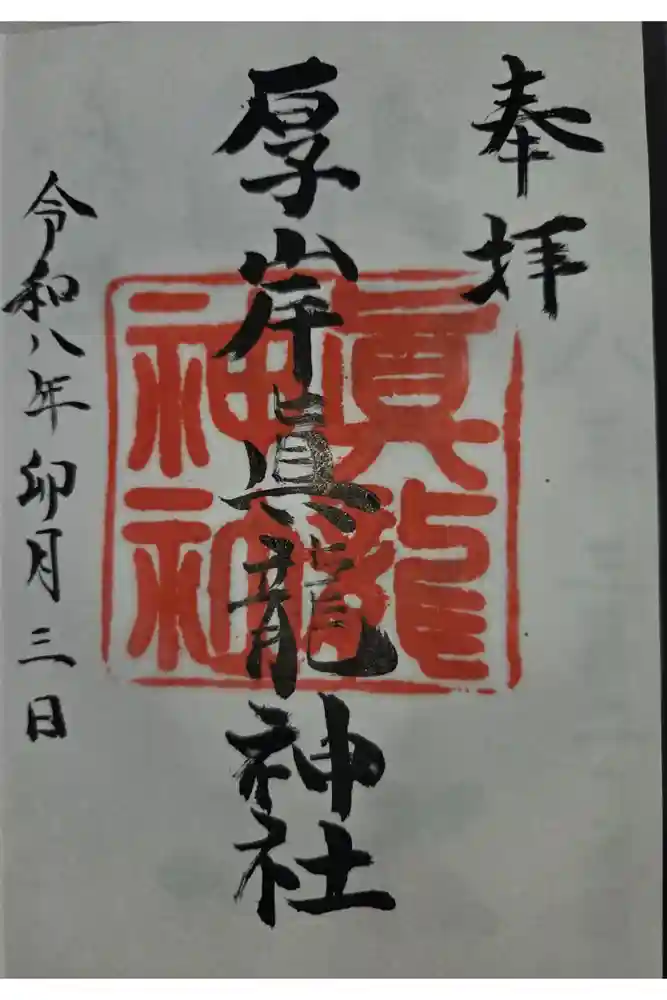 奉拝
厚岸眞龍神社
眞龍
神社
令和八年卯月三日